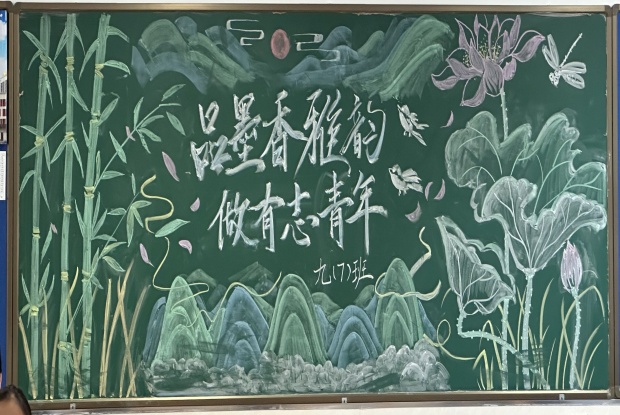 品墨香雅韵
做有志青年
九(7)班